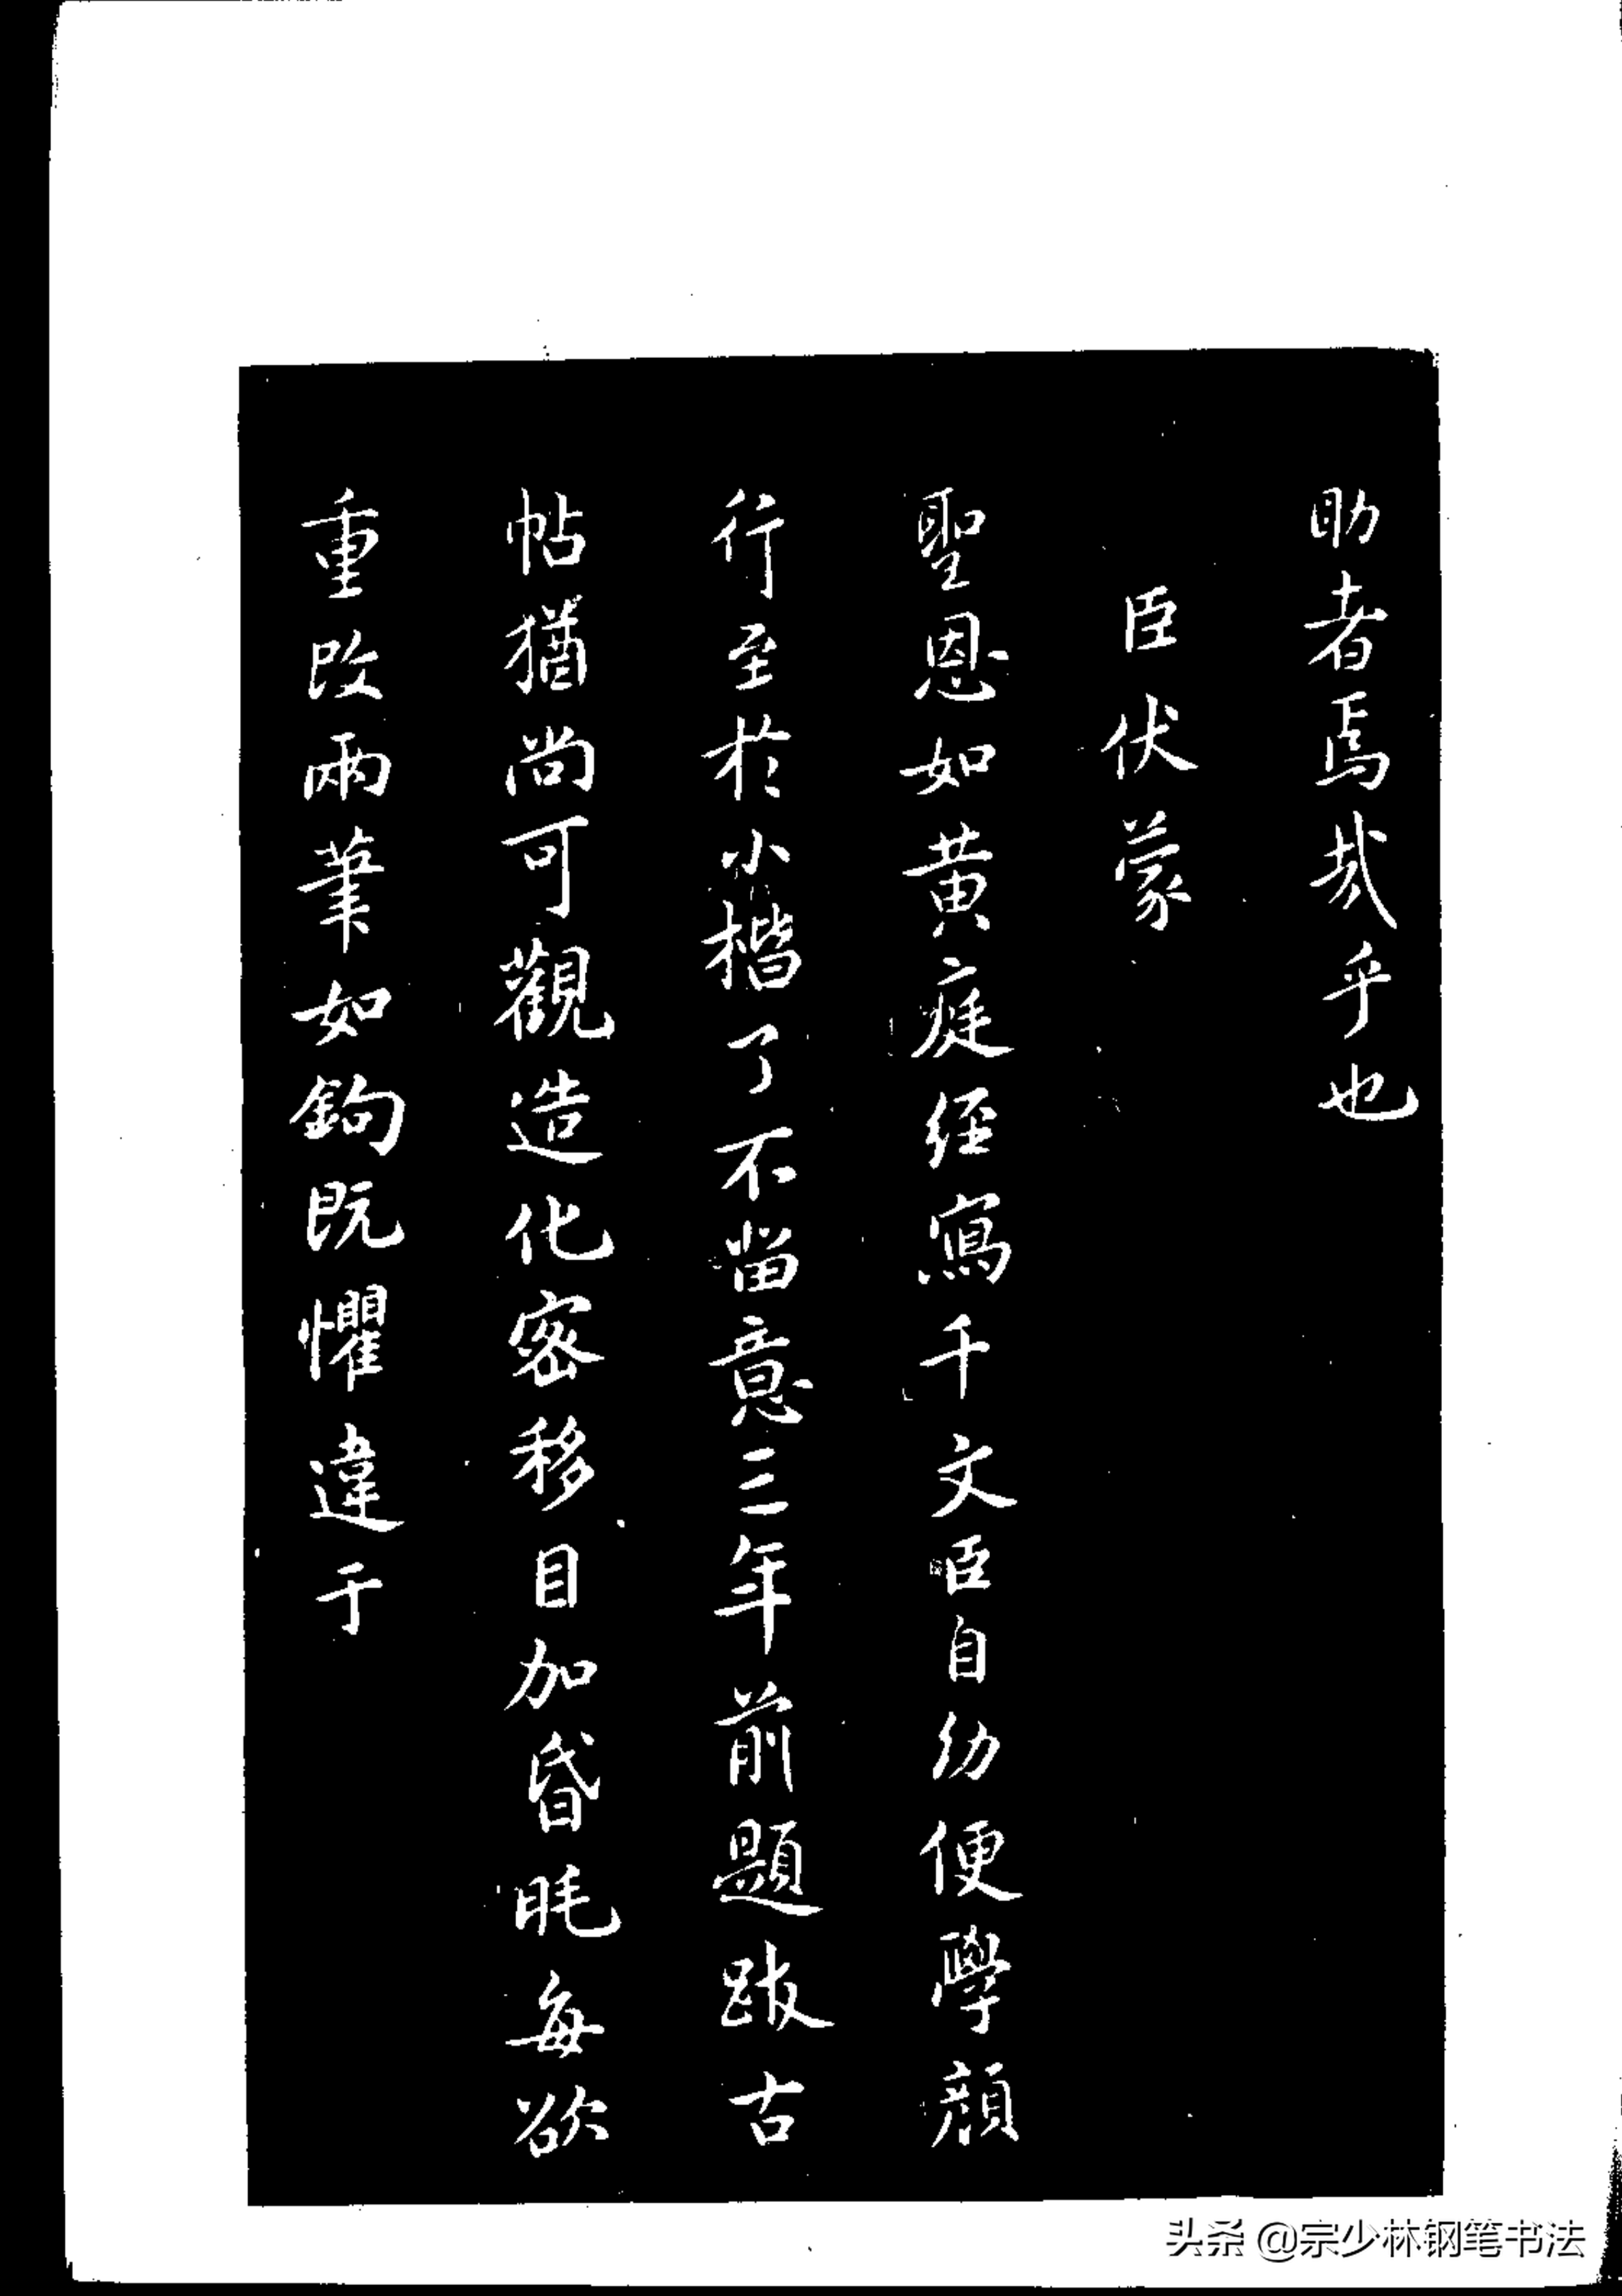 助者焉哉乎也
臣伏蒙
聖恩如黄庭經寫千文臣自幼便學顔
行至於小楷了不留意三年前題跋古
帖猶尚可觀造化密移目加昏眊每欲
重改兩筆如鉤既懼違于
头条 @宗少林钢笔书法